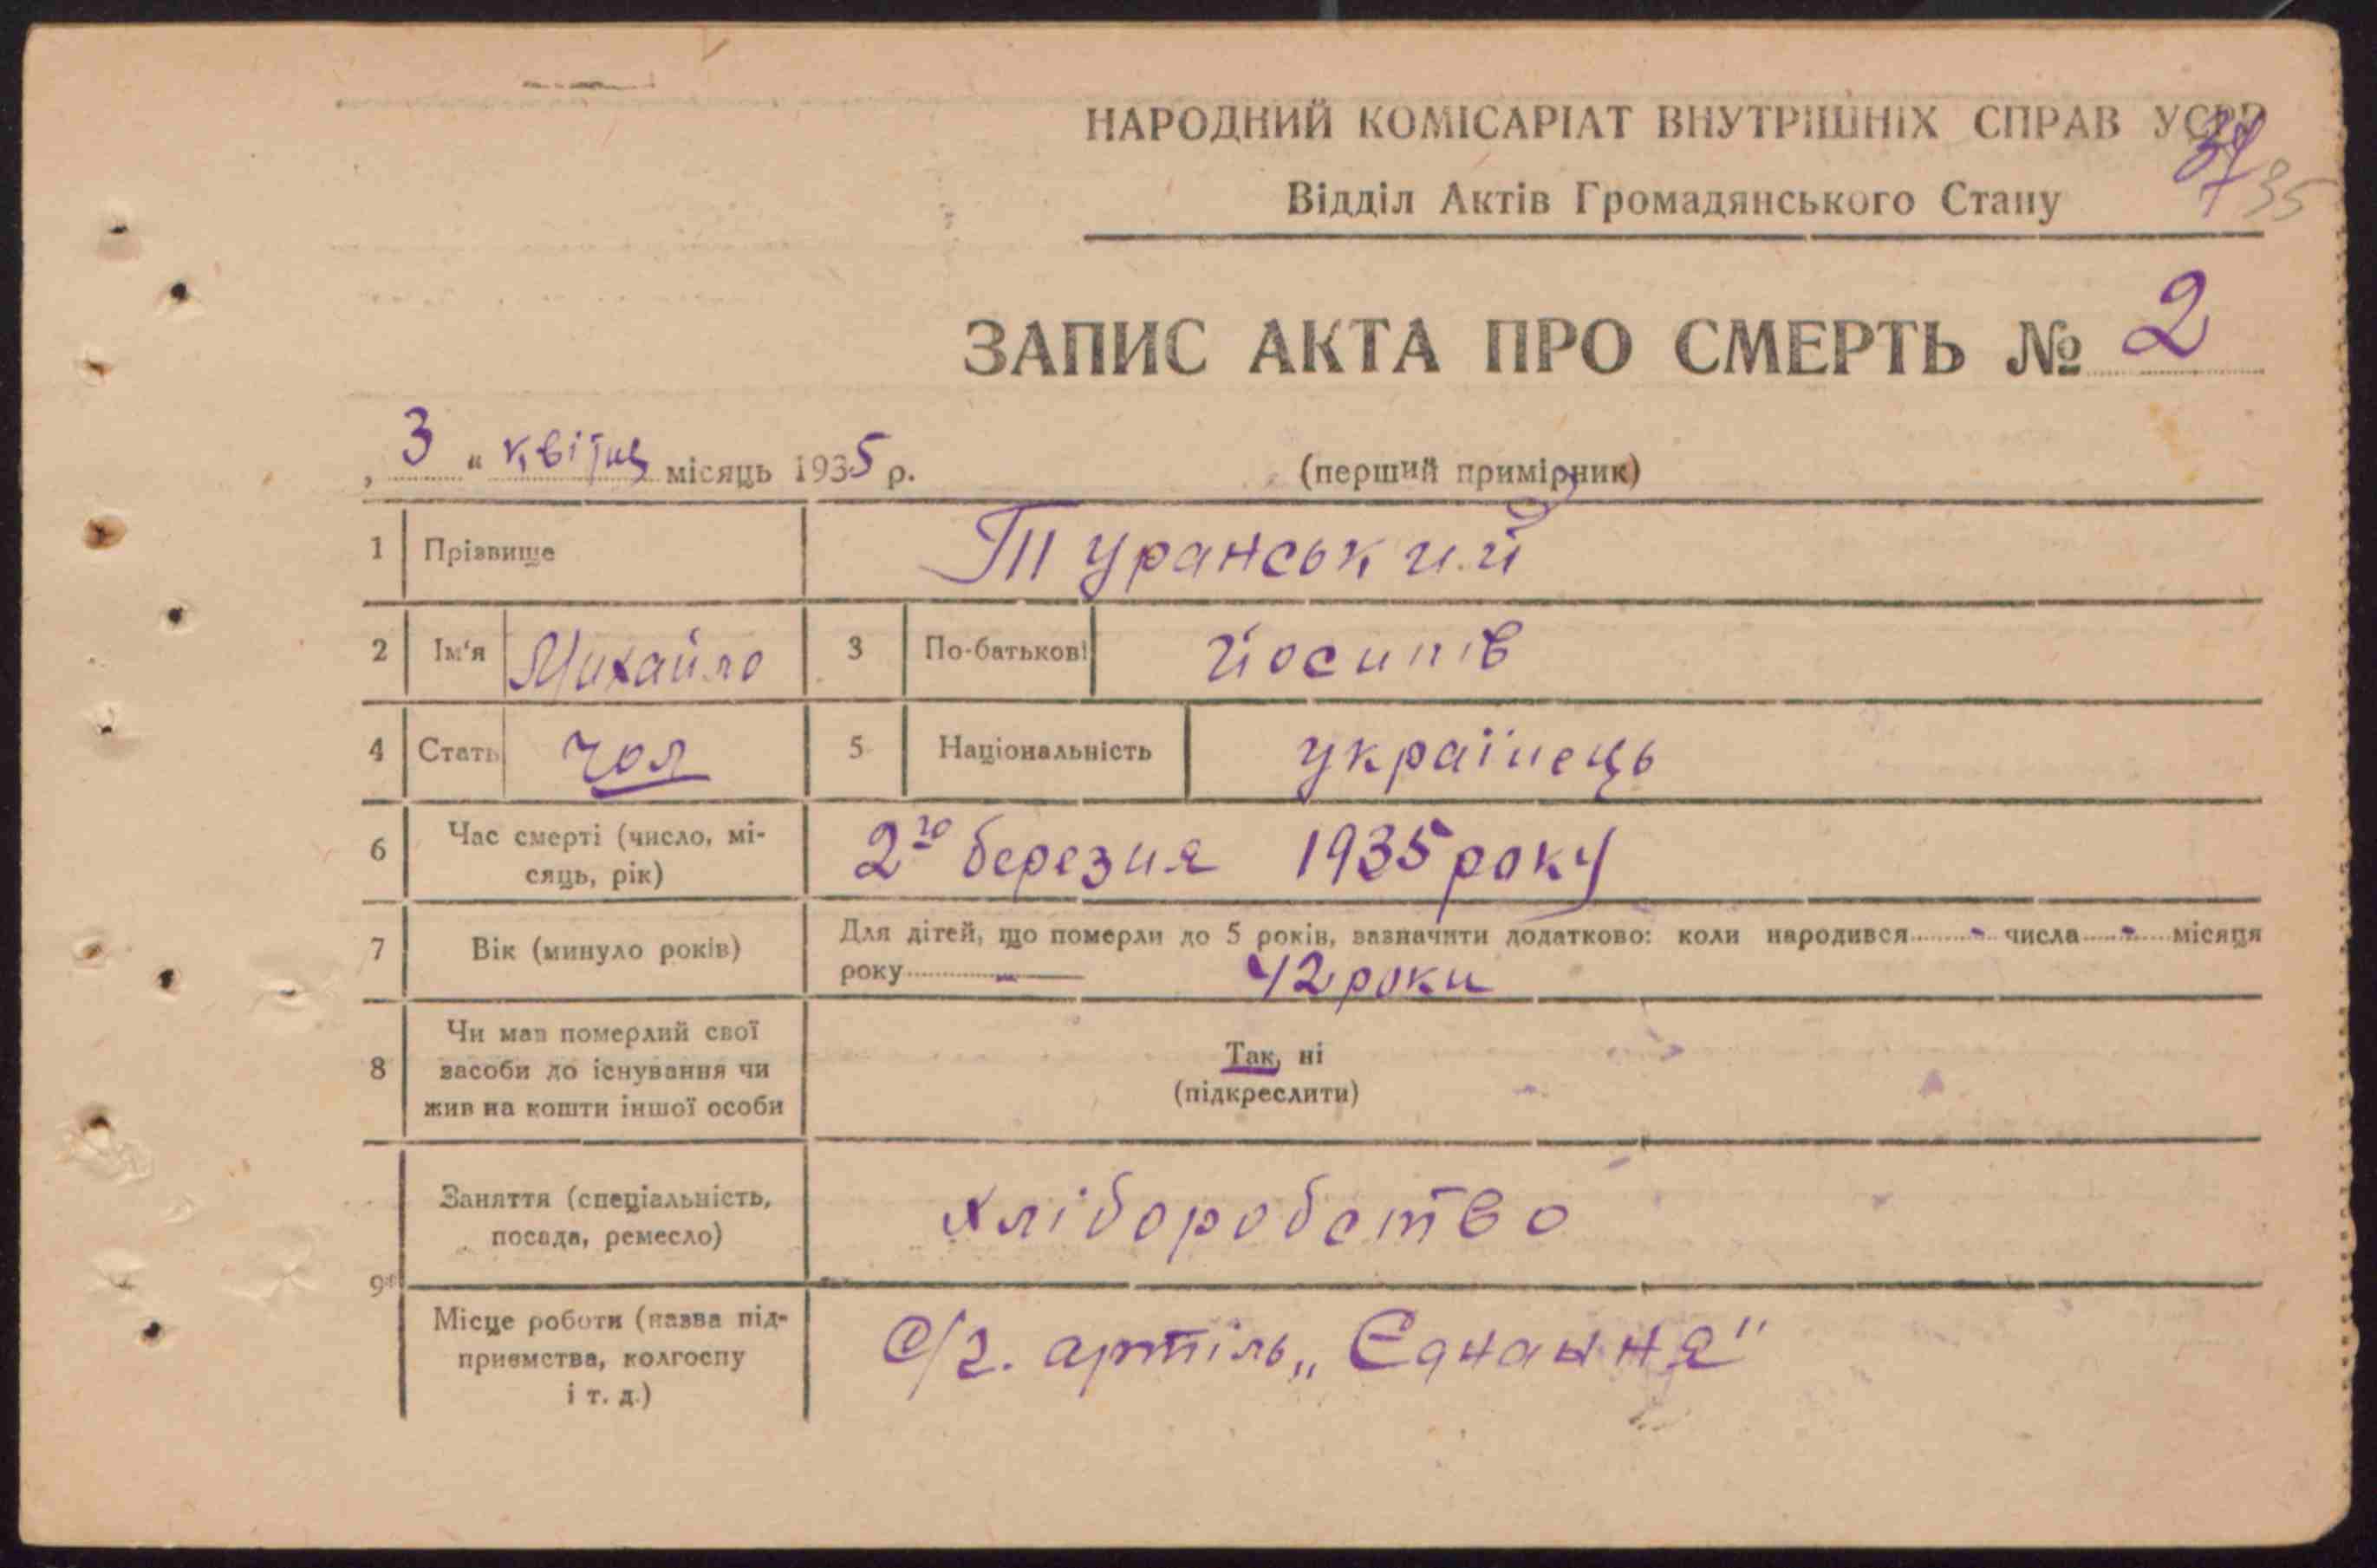 НАРОДНИЙ КОМІСАРІАТ ВНУТРІШНІХ СПРАВ УСРР
Відділ Актів Громадянського Стану
35
ЗАПИС АКТА ПРО СМЕРТЬ № 2
„ 3 “ квітня місяць 1935 р. (перший примірник)
1 Прізвище Туранський
2 Ім'я Михайло 3 По-батькові Йосипів
4 Стать чол 5 Національність українець
6 Час смерті (число, мі-
сяць, рік)
2го березня 1935 року
7 Вік (минуло років)
Для дітей, що померли до 5 років, зазначити додатково: коли народився - числа - місяця
року - 42 роки
8 Чи мав померлий свої
засоби до існування чи
жив на кошти іншої особи
Так, ні
(підкреслити)
9
Заняття (спеціальність,
посада, ремесло)
хліборобство
Місце роботи (назва під-
приємства, колгоспу
і т. д.)
С/г. артіль „Єднання"